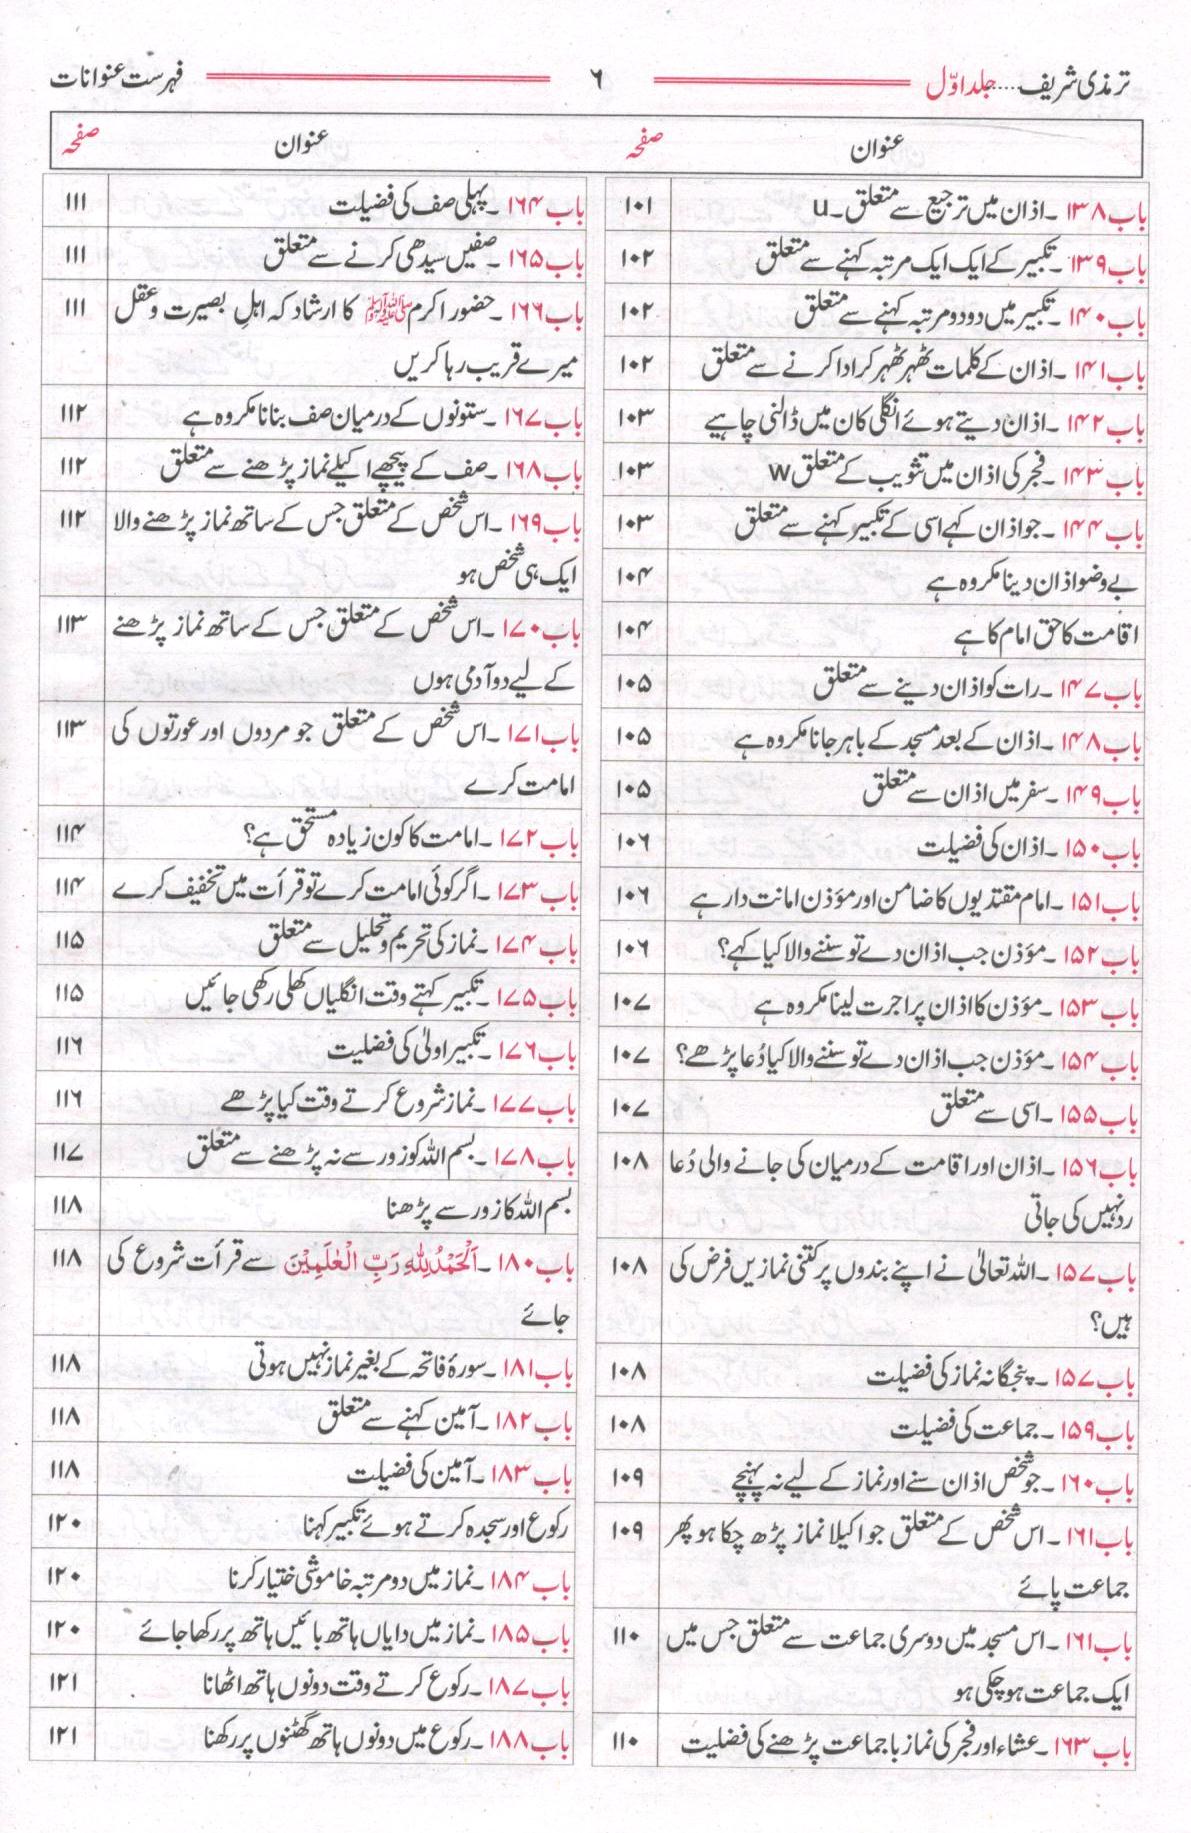 ترمذی شریف.....جلد اوّل ۶ فہرست عنوانات
عنوان صفحہ
باب ۱۳۸۔اذان میں ترجیع سے متعلق۔u ۱۰۱
باب ۱۳۹۔تکبیر کے ایک ایک مرتبہ کہنے سے متعلق ۱۰۲
باب ۱۴۰۔تکبیر میں دو دو مرتبہ کہنے سے متعلق ۱۰۲
باب ۱۴۱۔اذان کے کلمات ٹھہر ٹھہر کر ادا کرنے سے متعلق ۱۰۲
باب ۱۴۲۔اذان دیتے ہوئے انگلی کان میں ڈالنی چاہیے ۱۰۳
باب ۱۴۳۔فجر کی اذان میں تثویب کے متعلق w ۱۰۳
باب ۱۴۴۔جو اذان کہے اسی کے تکبیر کہنے سے متعلق ۱۰۳
بے وضو اذان دینا مکروہ ہے ۱۰۴
اقامت کا حق امام کا ہے ۱۰۴
باب ۱۴۷۔رات کو اذان دینے سے متعلق ۱۰۵
باب ۱۴۸۔اذان کے بعد مسجد کے باہر جانا مکروہ ہے ۱۰۵
باب ۱۴۹۔سفر میں اذان سے متعلق ۱۰۵
باب ۱۵۰۔اذان کی فضیلت ۱۰۶
باب ۱۵۱۔امام مقتدیوں کا ضامن اور مؤذن امانت دار ہے ۱۰۶
باب ۱۵۲۔مؤذن جب اذان دے تو سننے والا کیا کہے؟ ۱۰۶
باب ۱۵۳۔مؤذن کا اذان پر اجرت لینا مکروہ ہے ۱۰۷
باب ۱۵۴۔مؤذن جب اذان دے تو سننے والا کیا دُعا پڑھے؟ ۱۰۷
باب ۱۵۵۔اسی سے متعلق ۱۰۷
باب ۱۵۶۔اذان اور اقامت کے درمیان کی جانے والی دُعا ۱۰۸
رد نہیں کی جاتی
باب ۱۵۷۔اللہ تعالیٰ نے اپنے بندوں پر کتنی نمازیں فرض کی ۱۰۸
ہیں؟
باب ۱۵۷۔پنجگانہ نماز کی فضیلت ۱۰۸
باب ۱۵۹۔جماعت کی فضیلت ۱۰۸
باب ۱۶۰۔جو شخص اذان سنے اور نماز کے لیے نہ پہنچے ۱۰۹
باب ۱۶۱۔اس شخص کے متعلق جو اکیلا نماز پڑھ چکا ہو پھر ۱۰۹
جماعت پائے
باب ۱۶۱۔اس مسجد میں دوسری جماعت سے متعلق جس میں ۱۱۰
ایک جماعت ہو چکی ہو
باب ۱۶۳۔عشاء اور فجر کی نماز با جماعت پڑھنے کی فضلیت ۱۱۰
عنوان صفحہ
باب ۱۶۴۔پہلی صف کی فضیلت ۱۱۱
باب ۱۶۵۔صفیں سیدھی کرنے سے متعلق ۱۱۱
باب ۱۶۶۔حضور اکرم ﷺ کا ارشاد کہ اہلِ بصیرت و عقل ۱۱۱
میرے قریب رہا کریں
باب ۱۶۷۔ستونوں کے درمیان صف بنانا مکروہ ہے ۱۱۲
باب ۱۶۸۔صف کے پیچھے اکیلے نماز پڑھنے سے متعلق ۱۱۲
باب ۱۶۹۔اس شخص کے متعلق جس کے ساتھ نماز پڑھنے والا ۱۱۲
ایک ہی شخص ہو
باب ۱۷۰۔اس شخص کے متعلق جس کے ساتھ نماز پڑھنے ۱۱۳
کے لیے دو آدمی ہوں
باب ۱۷۱۔اس شخص کے متعلق جو مردوں اور عورتوں کی ۱۱۳
امامت کرے
باب ۱۷۲۔امامت کا کون زیادہ مستحق ہے؟ ۱۱۴
باب ۱۷۳۔اگر کوئی امامت کرے تو قرأت میں تخفیف کرے ۱۱۴
باب ۱۷۴۔نماز کی تحریم و تحلیل سے متعلق ۱۱۵
باب ۱۷۵۔تکبیر کہتے وقت انگلیاں کھلی رکھی جائیں ۱۱۵
باب ۱۷۶۔تکبیر اولیٰ کی فضلیت ۱۱۶
باب ۱۷۷۔نماز شروع کرتے وقت کیا پڑھے ۱۱۶
باب ۱۷۸۔بسم اللہ کو زور سے نہ پڑھنے سے متعلق ۱۱۷
بسم اللہ کا زور سے پڑھنا ۱۱۸
باب ۱۸۰۔اَلْحَمْدُ لِلّٰہِ رَبِّ الْعٰلَمِیْنَ سے قرأت شروع کی ۱۱۸
جائے
باب ۱۸۱۔سورۂ فاتحہ کے بغیر نماز نہیں ہوتی ۱۱۸
باب ۱۸۲۔آمین کہنے سے متعلق ۱۱۸
باب ۱۸۳۔آمین کی فضیلت ۱۱۸
رکوع اور سجدہ کرتے ہوئے تکبیر کہنا ۱۲۰
باب ۱۸۴۔نماز میں دو مرتبہ خاموشی ختیار کرنا ۱۲۰
باب ۱۸۵۔نماز میں دایاں ہاتھ بائیں ہاتھ پر رکھا جائے ۱۲۰
باب ۱۸۷۔رکوع کرتے وقت دونوں ہاتھ اٹھانا ۱۲۱
باب ۱۸۸۔رکوع میں دونوں ہاتھ گھٹنوں پر رکھنا ۱۲۱